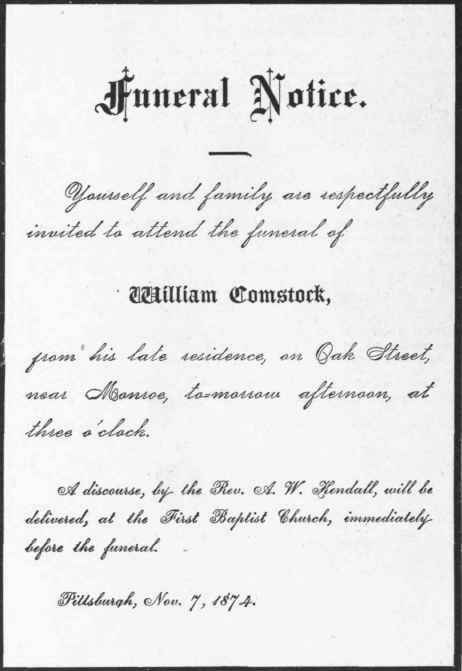 Funeral Notice.
Yourself and family are respectfully
invited to attend the funeral of
William Comstock,
from his late residence, on Oak Street,
near Monroe, to-morrow afternoon, at
three o'clock.
A discourse, by the Rev. A. W. Kendall, will be
delivered, at the First Baptist Church, immediately
before the funeral.
Pittsburgh, Nov. 7, 1874.